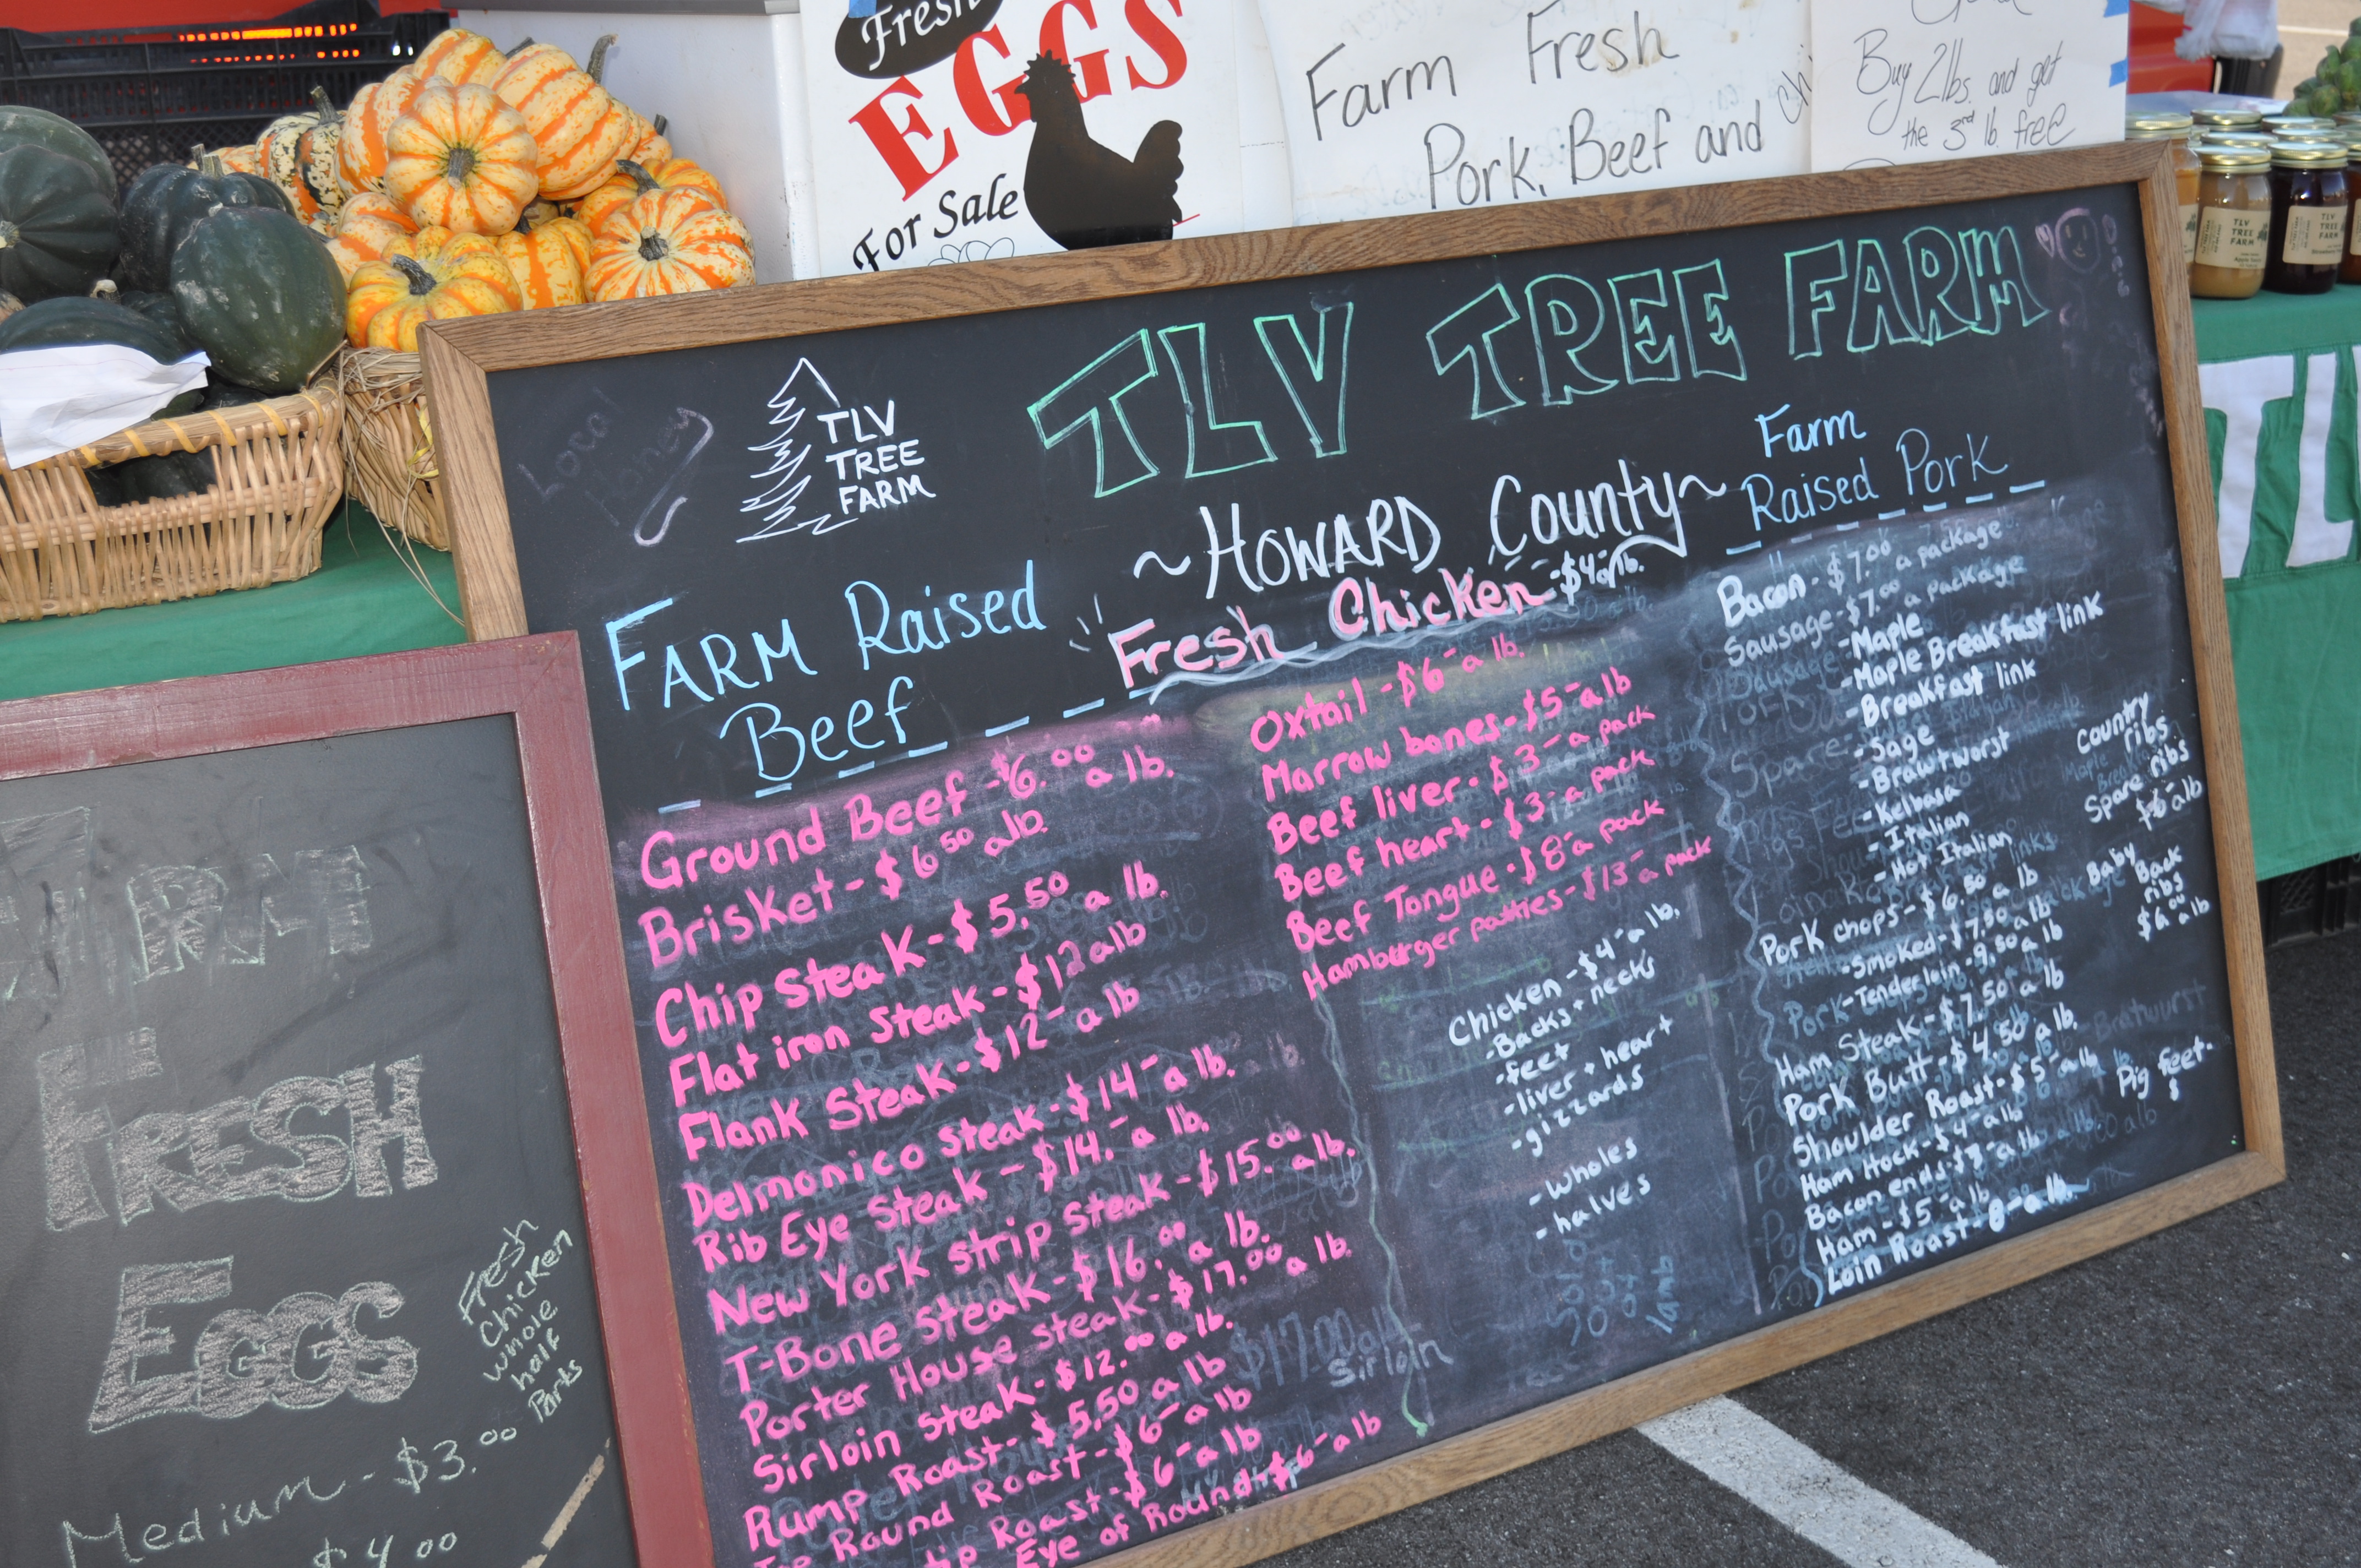 Fresh
EGGS
For Sale
Farm Fresh
Pork, Beef and
Buy 2lbs. and get
the 3rd lb. free
TLV
TREE
FARM
TLV TREE FARM
~HOWARD County~
Local
honey
TLV
TREE
FARM
FARM Raised
Beef
Ground Beef - $6.00
a lb.
Brisket - $6.50 a lb.
Chip Steak - $5.50 a lb.
Flat iron Steak - $12 a lb
Flank Steak - $12 - a lb
Delmonico Steak - $14 - a lb.
Rib Eye Steak - $14. - a lb.
New York Strip Steak - $15.00 a lb.
T-Bone Steak - $16.00 a lb.
Porter House Steak - $17.00 a lb.
Sirloin Steak - $12.00 a lb.
Rump Roast - $5.50 a lb
Round Roast - $6 - a lb
Roast - $6 - a lb
Eye of Round - $6 - a lb
$17.00 a lb
Sirloin
Fresh Chicken - $4 - lb.
Oxtail - $6 - a lb.
Marrow bones - $5 - a lb
Beef liver - $3 - a pack
Beef heart - $3 - a pack
Beef Tongue - $8 - a pack
Hamberger patties - $13 - a pack
Chicken - $4 - a lb.
-Backs + necks
-feet
-liver + heart
-gizzards
-wholes
-halves
lamb
Farm
Raised Pork
Bacon - $7.00 a package
Sausage - $7.00 a package
-Maple
-Maple Breakfast link
-Breakfast link
-Sage
-Brawtworst
-Kelbasa
-Italian
-Hot Italian
Pork chops - $6.50 a lb
-Smoked - $7.50 a lb
Pork-Tenderloin - 9.50 a lb
Ham Steak - $7.50 a lb
Pork Butt - $4.50 a lb.
Shoulder Roast - $5 - a lb
Ham Hock - $4 - a lb
Bacon ends - $3 - a lb
Ham - $5 - a lb
Loin Roast - 8 - a lb
Country
ribs
Spare ribs
$6 - a lb
Baby Back
ribs
$6.00 a lb
Bratwurst
Pig feet -
FRESH
EGGS
Fresh
Chicken
whole
half
Parts
Medium - $3.00
$4.00
TL